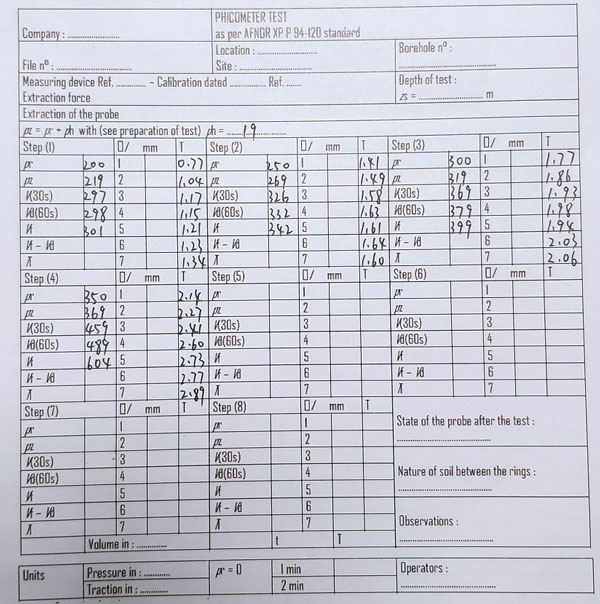 PHICOMETER TEST
Company : ............... as per AFNOR XP P 94-120 standard
Location : ............... Borehole nº :
File nº : ............... Site : ...............
Measuring device Ref. ............ - Calibration dated ............ Ref. ...... Depth of test :
Extraction force zs = ............... m
Extraction of the probe
pz = pr + ph with (see preparation of test) ph = ......19
Step (1) D/ mm T Step (2) D/ mm T Step (3) D/ mm T
pr 200 1 0.77 pr 250 1 1.41 pr 300 1 1.77
pz 219 2 1.04 pz 269 2 1.49 pz 319 2 1.86
(30s) 297 3 1.17 (30s) 326 3 1.58 (30s) 369 3 1.93
(60s) 298 4 1.15 (60s) 332 4 1.63 (60s) 379 4 1.98
301 5 1.21 342 5 1.61 399 5 1.94
6 1.23 6 1.64 6 2.03
7 1.34 7 1.60 7 2.06
Step (4) D/ mm T Step (5) D/ mm T Step (6) D/ mm T
pr 350 1 2.14 pr 1 pr 1
pz 369 2 2.27 pz 2 pz 2
(30s) 459 3 2.41 (30s) 3 (30s) 3
(60s) 489 4 2.60 (60s) 4 (60s) 4
604 5 2.73 5 5
6 2.77 6 6
7 2.89 7 7
Step (7) D/ mm T Step (8) D/ mm T State of the probe after the test :
pr 1 pr 1
pz 2 pz 2
(30s) 3 (30s) 3
(60s) 4 (60s) 4 Nature of soil between the rings :
5 5
6 6 Observations :
7 7
Volume in : ............ t T
Units Pressure in : ......... pr = 0 1 min Operators :
Traction in : ......... 2 min